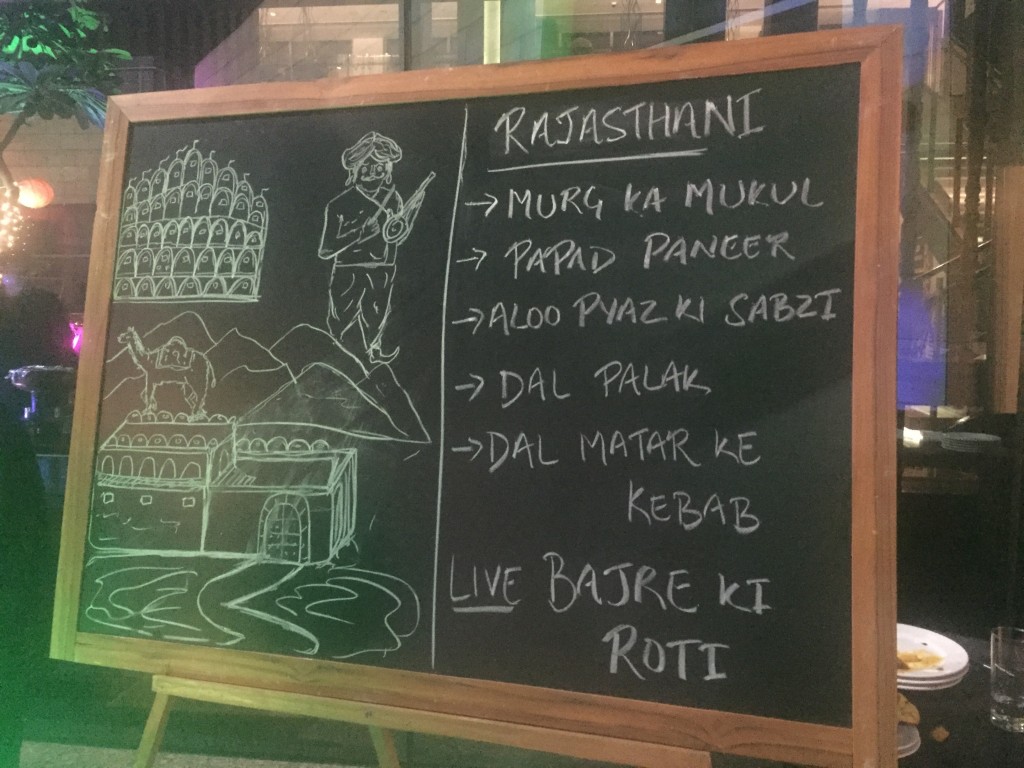 RAJASTHANI
→ MURG KA MUKUL
→ PAPAD PANEER
→ ALOO PYAZ KI SABZI
→ DAL PALAK
→ DAL MATAR KE
KEBAB
LIVE BAJRE KI
ROTI